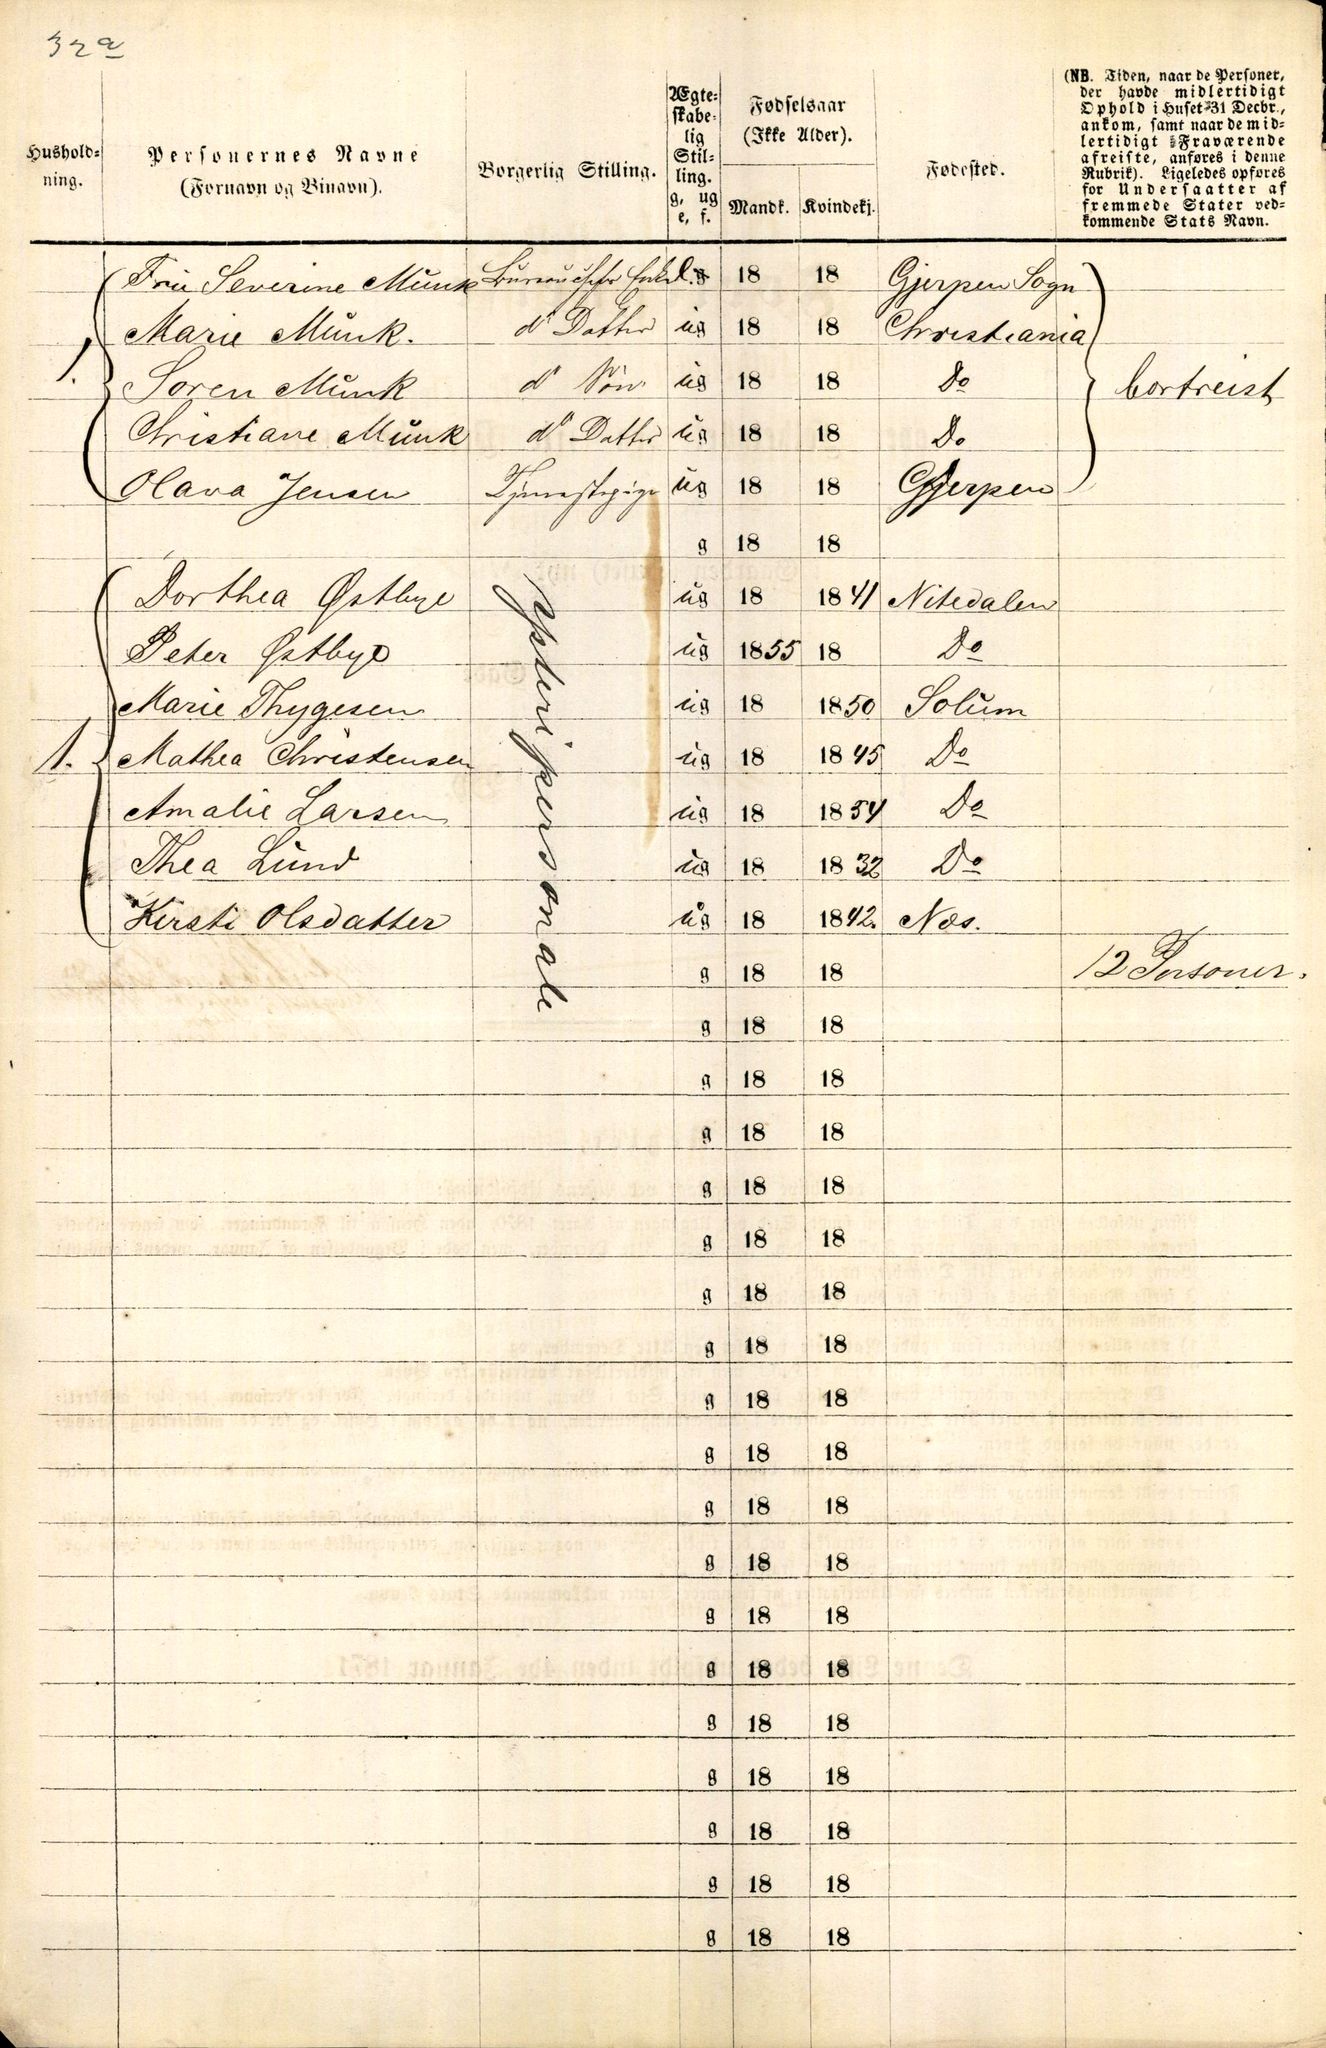 32a
Hushold-
ning.
Personernes Navne
(Fornavn og Binavn).
Borgerlig Stilling.
Ægte-
skabe-
lig
Stil-
ling.
g, ug
e, f.
Fødselsaar
(Ikke Alder).
Mandk. Kvindekj.
Fødested.
(NB. Tiden, naar de Personer,
der havde midlertidigt
Ophold i Huset 31 Decbr.,
ankom, samt naar de mid-
lertidigt Fraværende
afreiste, anføres i denne
Rubrik). Ligeledes opføres
for Undersaatter af
fremmede Stater ved-
kommende Stats Navn.
1.
Frü Severine Münk 18 18 Gjerpen Sogn
Marie Münk. d° Datter üg 18 18 Christiania
Soren Münk d° Sön üg 18 18 Do
Christiane Münk d° Datter üg 18 18 Do
Olava Jensen Tjenestepige üg 18 18 Gjerpen
bortreist
g 18 18
1.
Dorthea Østbye üg 18 1841 Nitedalen
Peter Østbye üg 1855 18 Do
Marie Thygesen üg 18 1850 Solüm
Mathea Christensen üg 18 1845 Do
Amalie Larsen üg 18 1854 Do
Thea Lünd üg 18 1832 Do
Kirsti Olsdatter üg 18 1842. Næs.
g 18 18 12 Personer.
g 18 18
g 18 18
g 18 18
g 18 18
g 18 18
g 18 18
g 18 18
g 18 18
g 18 18
g 18 18
g 18 18
g 18 18
g 18 18
g 18 18
g 18 18
g 18 18
g 18 18
g 18 18